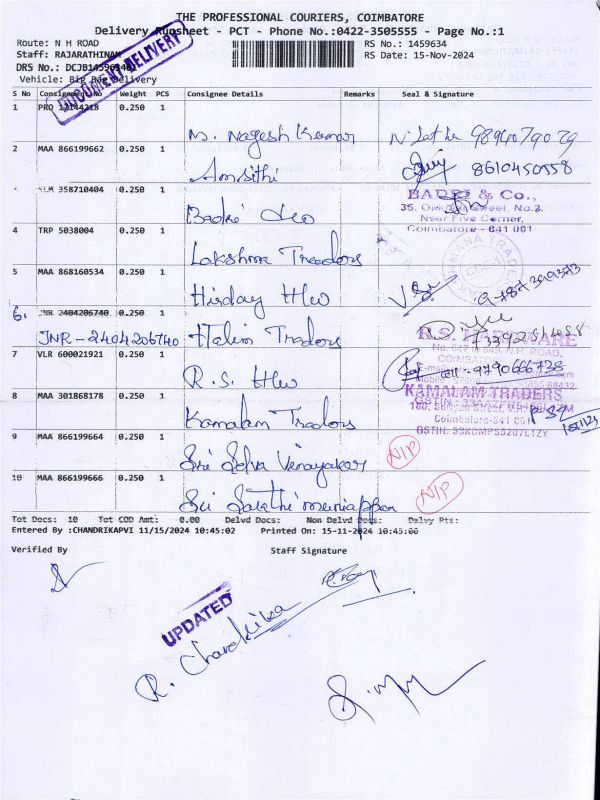 THE PROFESSIONAL COURIERS, COIMBATORE
Delivery Runsheet - PCT - Phone No.:0422-3505555 - Page No.:1
Route: N H ROAD RS No.: 1459634
Staff: RAJARATHINAM RS Date: 15-Nov-2024
DRS No.: DCJB1459634
Vehicle: Big Bag Delivery
DOCUMENT DELIVERY
S No Consignment No Weight PCS Consignee Details Remarks Seal & Signature
1 PRO 0.250 1
M. Nagesh Kumar N. Latha 9894079079
2 MAA 866199662 0.250 1
Amsithi 8610450558
358710404 0.250 1
Badri BADRI & Co.,
35, Street, No.2,
Near Five Corner,
Coimbatore - 641 001
4 TRP 5038004 0.250 1
Lakshmi Traders
5 MAA 868160534 0.250 1
Hirday H/W
6. JNR 2404206740 0.250 1
JNR-2404206740 Halim Traders
R.S. HARDWARE
N.H. ROAD,
7 VLR 600021921 0.250 1
R.S. H/W cell - 9790666738
8 MAA 301868178 0.250 1
KAMALAM TRADERS
Kamalam Traders
Coimbatore-641 001
9 MAA 866199664 0.250 1
Sri Selva Vinayakar N/P
10 MAA 866199666 0.250 1
Sri Sakthi Muniappan N/P
Tot Docs: 10 Tot COD Amt: 0.00 Delvd Docs: Non Delvd Docs: Delvy Pts:
Entered By :CHANDRIKAPVI 11/15/2024 10:45:02 Printed On: 15-11-2024 10:45:06
Verified By Staff Signature
UPDATED
R. Chandrika